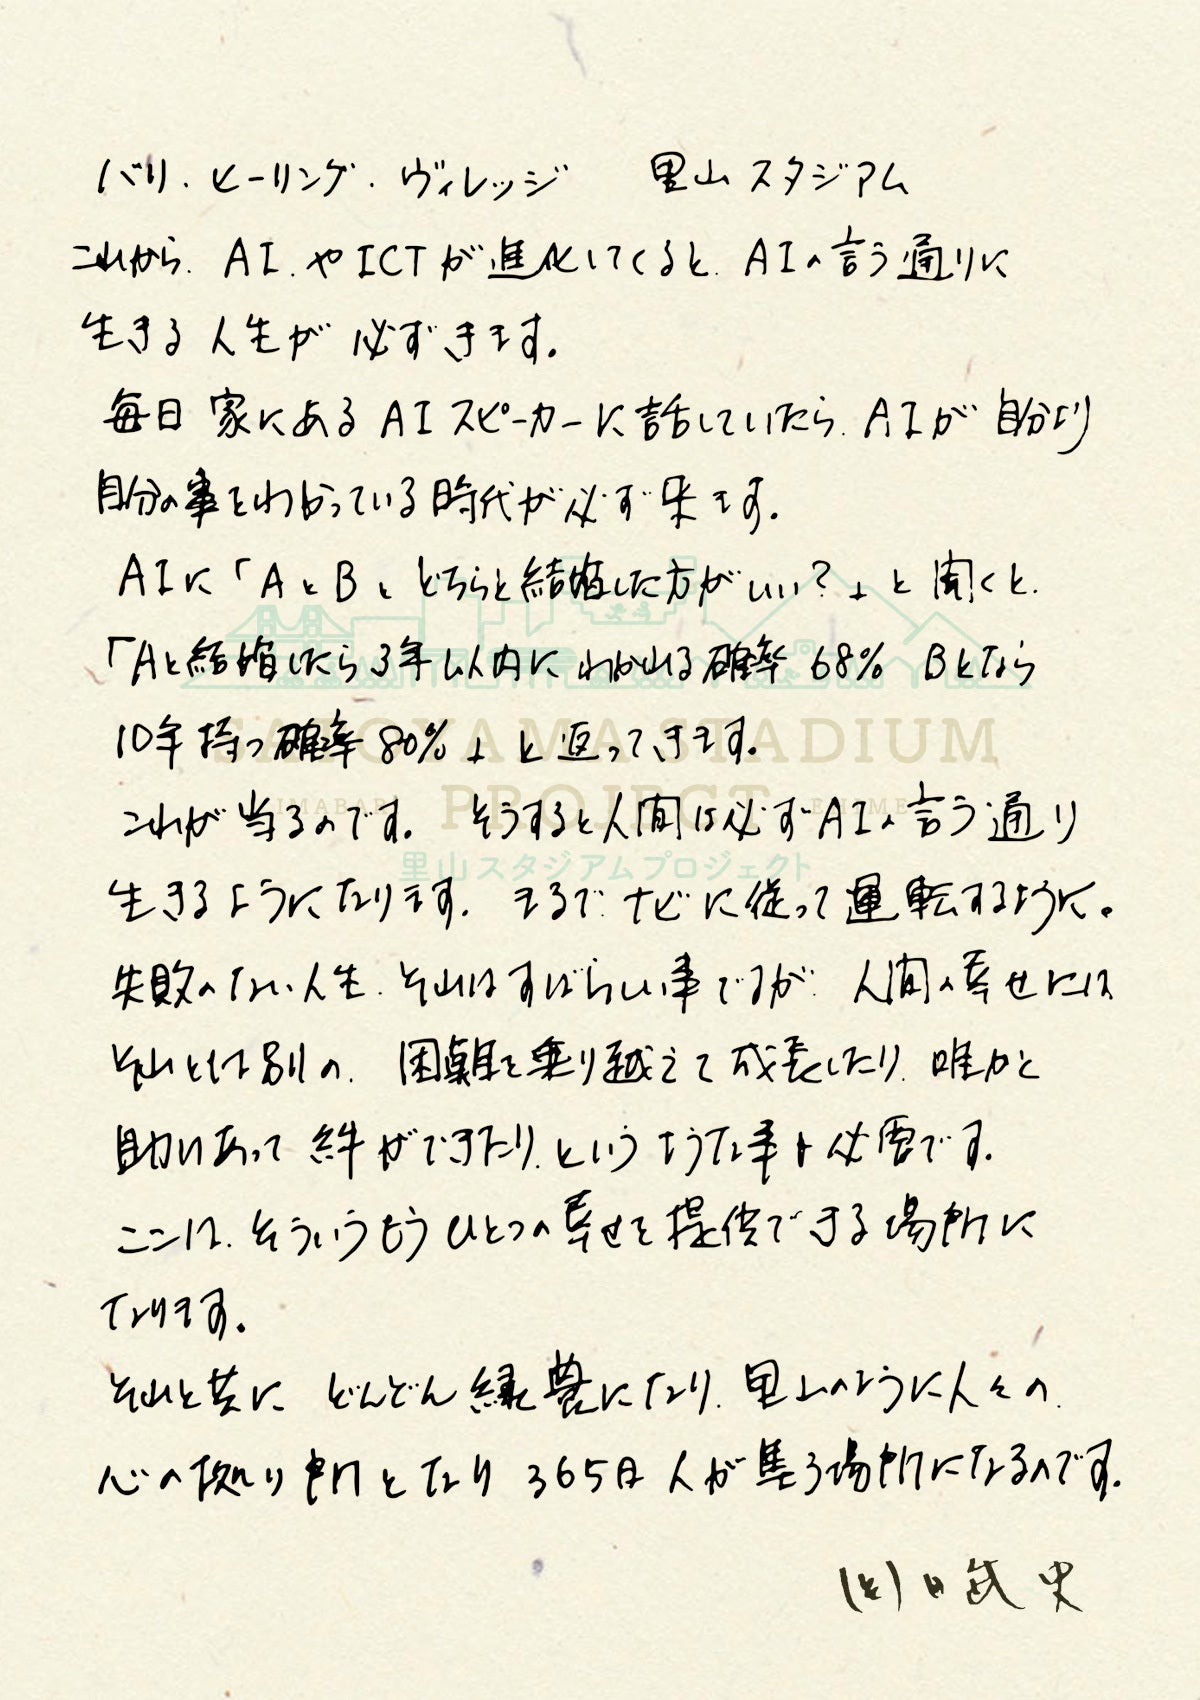 バリ・ヒーリング・ヴィレッジ　里山スタジアム
これから、AI、やICTが進化してくると、AIの言う通りに
生きる人生が必ずきます。
毎日家にあるAIスピーカーに話していたら、AIが自分より
自分の事をわかっている時代が必ず来ます。
AIに「AとBとどちらと結婚した方がいい？」と聞くと、
「Aと結婚したら3年以内にわかれる確率68% Bとなら
10年持つ確率80%」と返ってきます。
SATOYAMA STADIUM
これが当るのです。そうすると人間は必ずAIの言う通り
IMABARI PROJECT EHIME
里山スタジアムプロジェクト
生きるようになります。まるでナビに従って運転するように。
失敗のない人生、それはすばらしい事ですが、人間の幸せには
それとは別の、困難を乗り越えて成長したり、誰かと
助けあって絆ができたり、というような事も必要です。
ここは、そういうもうひとつの幸せを提供できる場所に
なります。
それと共に どんどん緑豊になり、里山のように人々の
心の拠り所となり365日人が集う場所になるのです。
武史